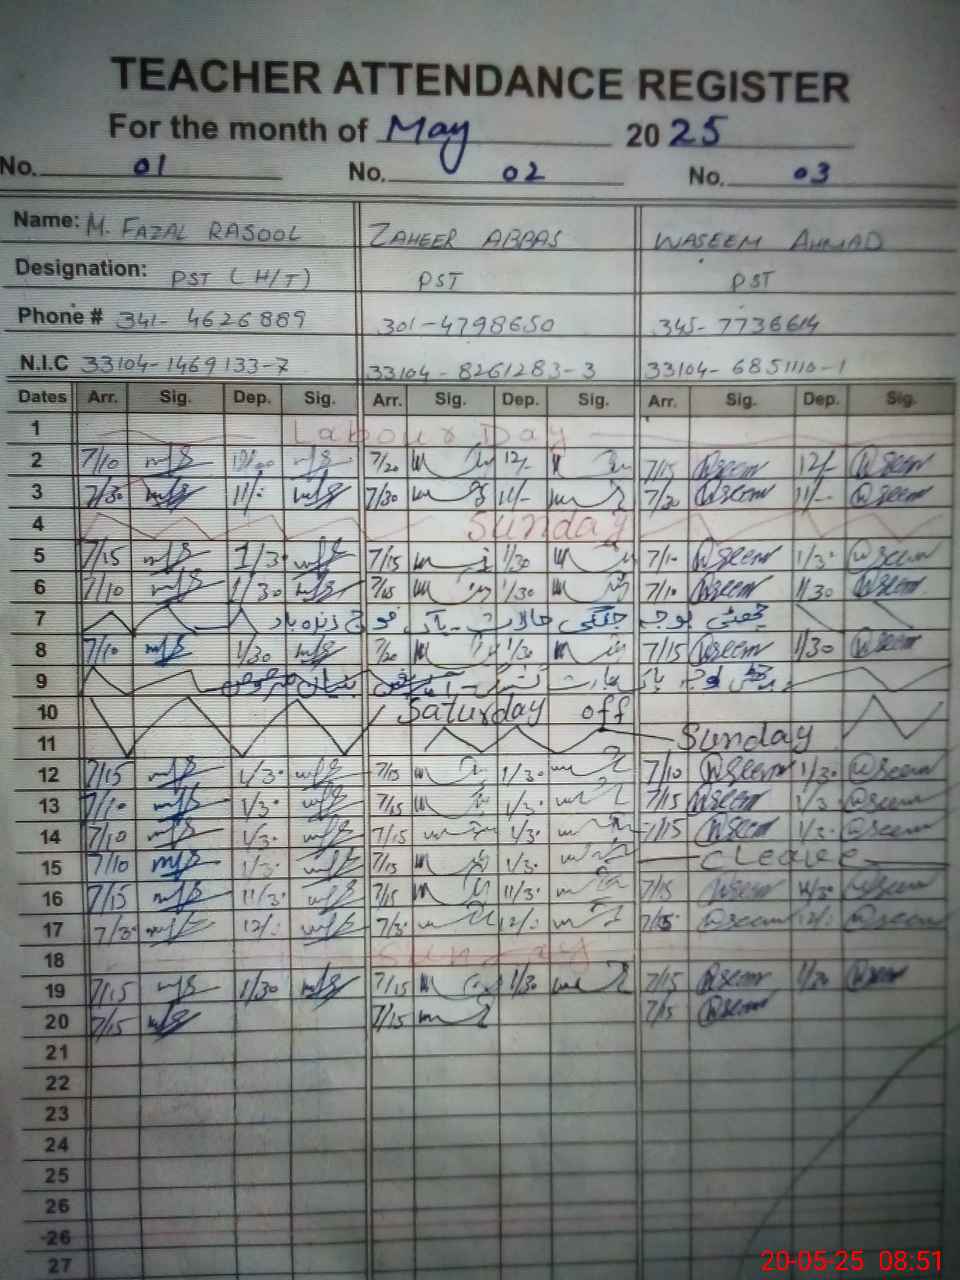 TEACHER ATTENDANCE REGISTER
For the month of May 2025
No. 01 No. 02 No. 03
Name: M. FAZAL RASOOL ZAHEER ABBAS WASEEM AHMAD
Designation: PST (H/T) PST PST
Phone # 341-4626889 301-4798650 345-7736614
N.I.C 33104-1469133-7 33104-8261283-3 33104-6851110-1
Dates Arr. Sig. Dep. Sig. Arr. Sig. Dep. Sig. Arr. Sig. Dep. Sig.
1 Labour Day
2 7/10 7/20 12/- 7/15 Wseem 12/- Wseem
3 7/30 11/- 7/30 11/- 7/30 Wseem 11/- Wseem
4 Sunday
5 7/15 1/30 7/15 1/30 7/10 Wseem 1/30 Wseem
6 7/10 1/30 7/15 1/30 7/10 Wseem 1/30 Wseem
7 چھٹی بوجہ جنگی حالات پاک فوج زندہ باد
8 7/10 1/30 7/20 1/30 7/15 Wseem 1/30 Wseem
9 بوجہ پاک بھارت بنیان مرصوص
10 Saturday off
11 Sunday
12 7/15 1/30 7/15 1/30 7/10 Wseem 1/30 Wseem
13 7/10 1/30 7/15 1/30 7/15 Wseem 1/30 Wseem
14 7/10 1/30 7/15 1/30 7/15 Wseem 1/30 Wseem
15 7/10 1/30 7/15 1/30 C leave
16 7/15 11/30 7/15 11/30 7/15 Wseem 11/30 Wseem
17 7/30 12/- 7/30 12/- 7/15 Wseem 12/- Wseem
18 Sunday
19 7/15 1/30 7/15 1/30 7/15 Wseem 1/30 Wseem
20 7/15 7/15 7/15 Wseem
21
22
23
24
25
26
26
27
20-05-25 08:51